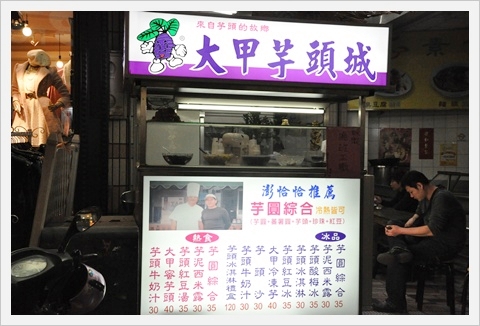 來自芋頭的故鄉
大甲芋頭城
澎恰恰推薦
芋圓綜合 冷熱皆可
(芋圓、蕃薯圓、芋頭、珍珠、紅豆)
熱食
芋圓綜合 35
芋泥西米露 30
芋頭紅豆湯 35
大甲蜜芋 40
芋頭牛奶汁 30
冰品
芋圓綜合 35
芋泥西米露 30
芋頭酸梅冰 35
芋頭冰淇淋 30
芋頭紅豆冰 35
大甲冷凍芋 40
芋頭沙 30
芋頭牛奶 30
芋頭冰淇淋禮盒 120